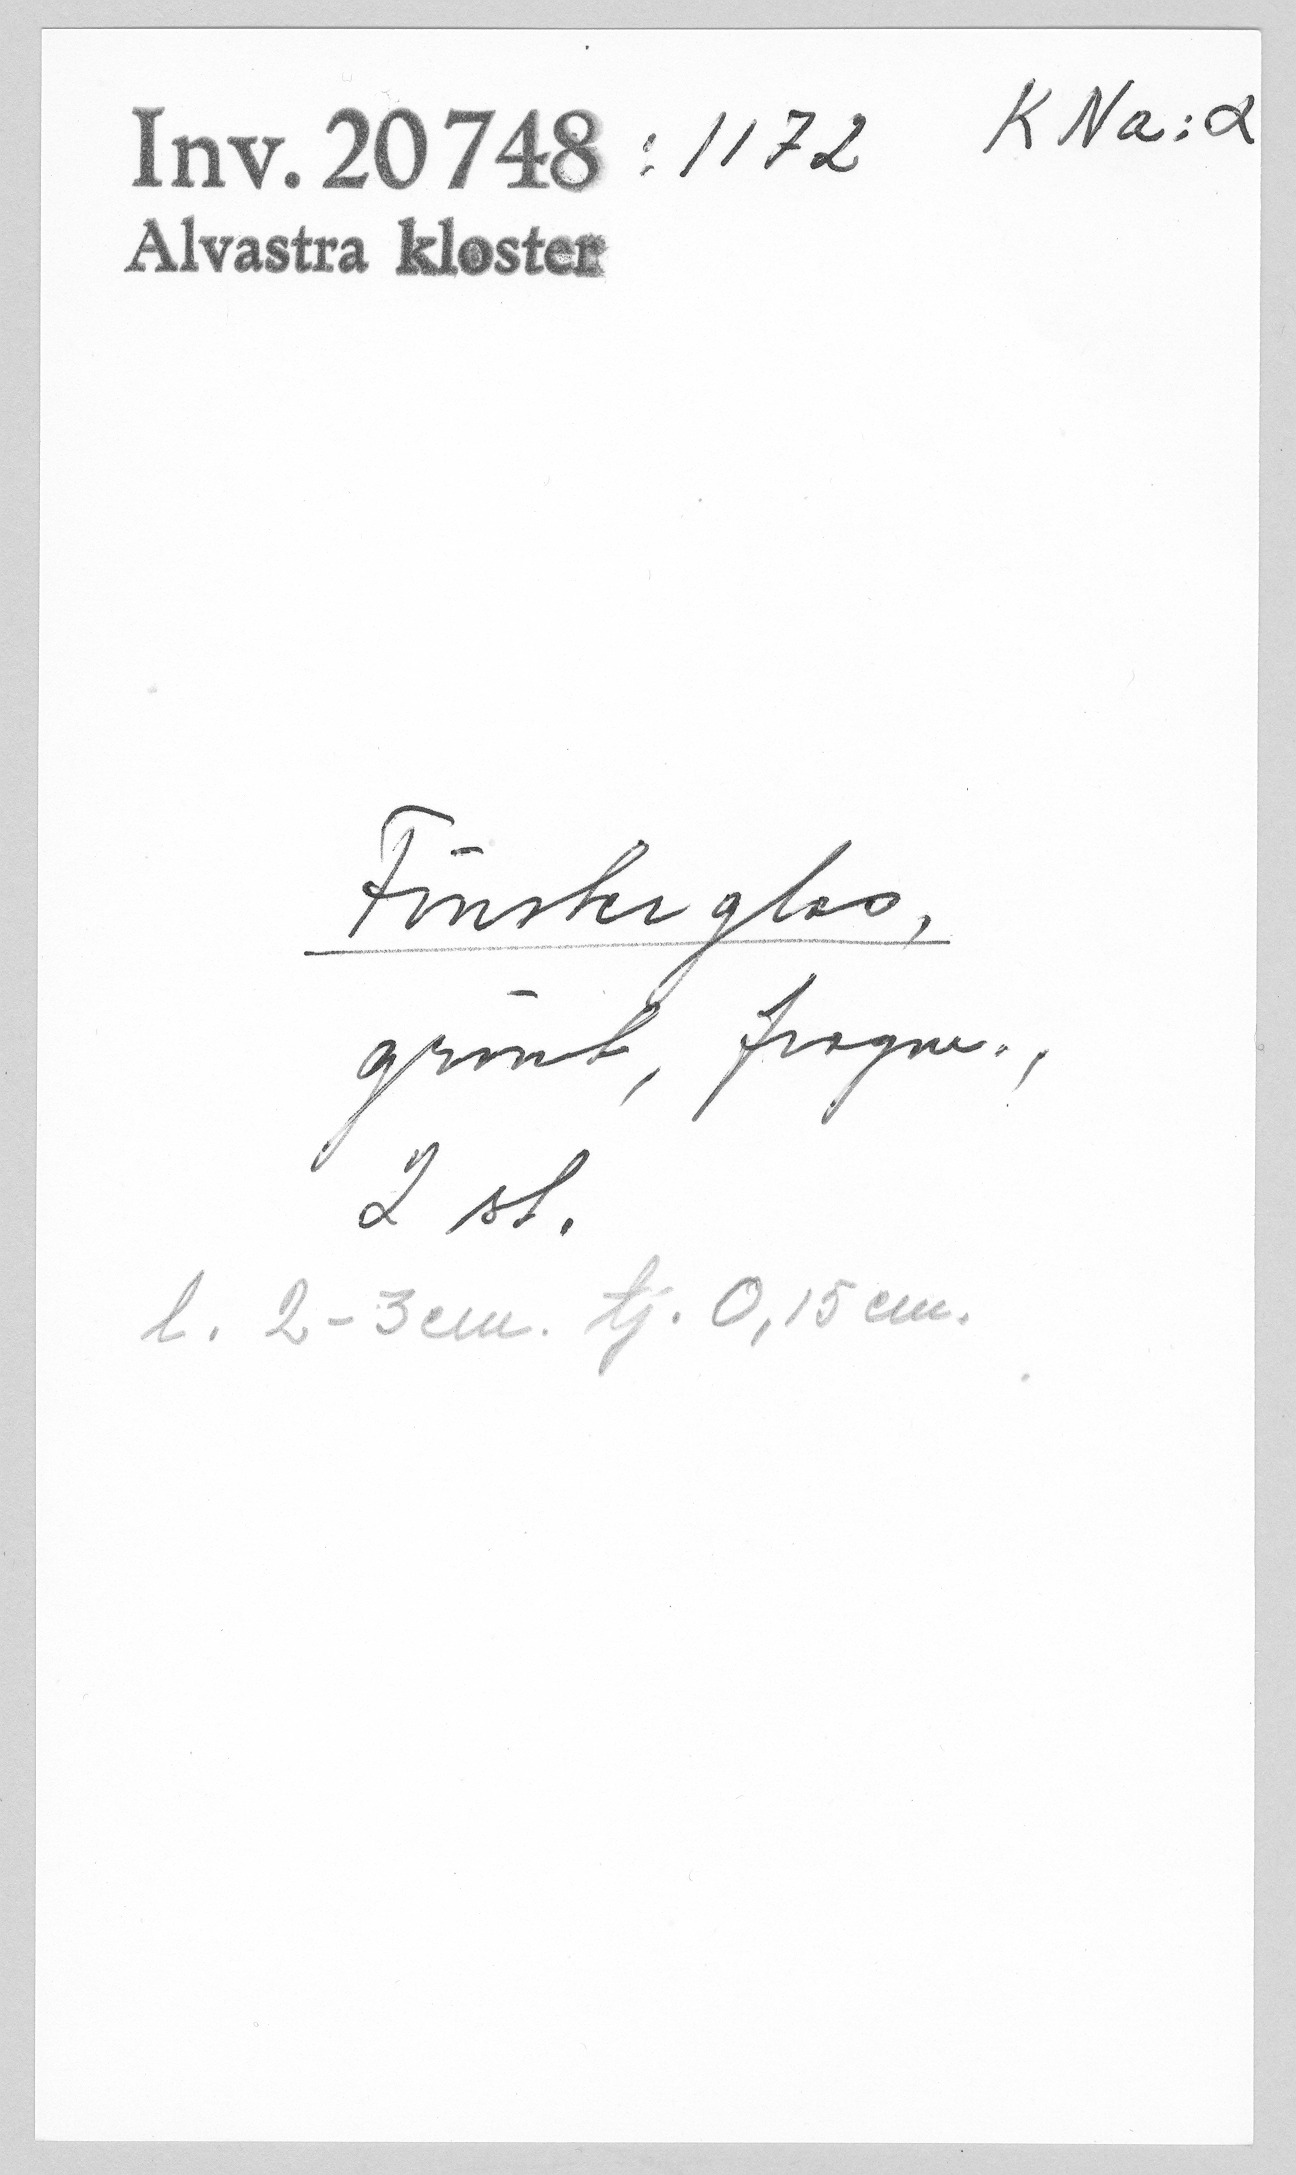 Inv. 20748 : 1172 K Na:2
Alvastra kloster
Fönsterglas,
grönt, fragm.,
2 st.
l. 2-3 cm. tj. 0,15 cm.